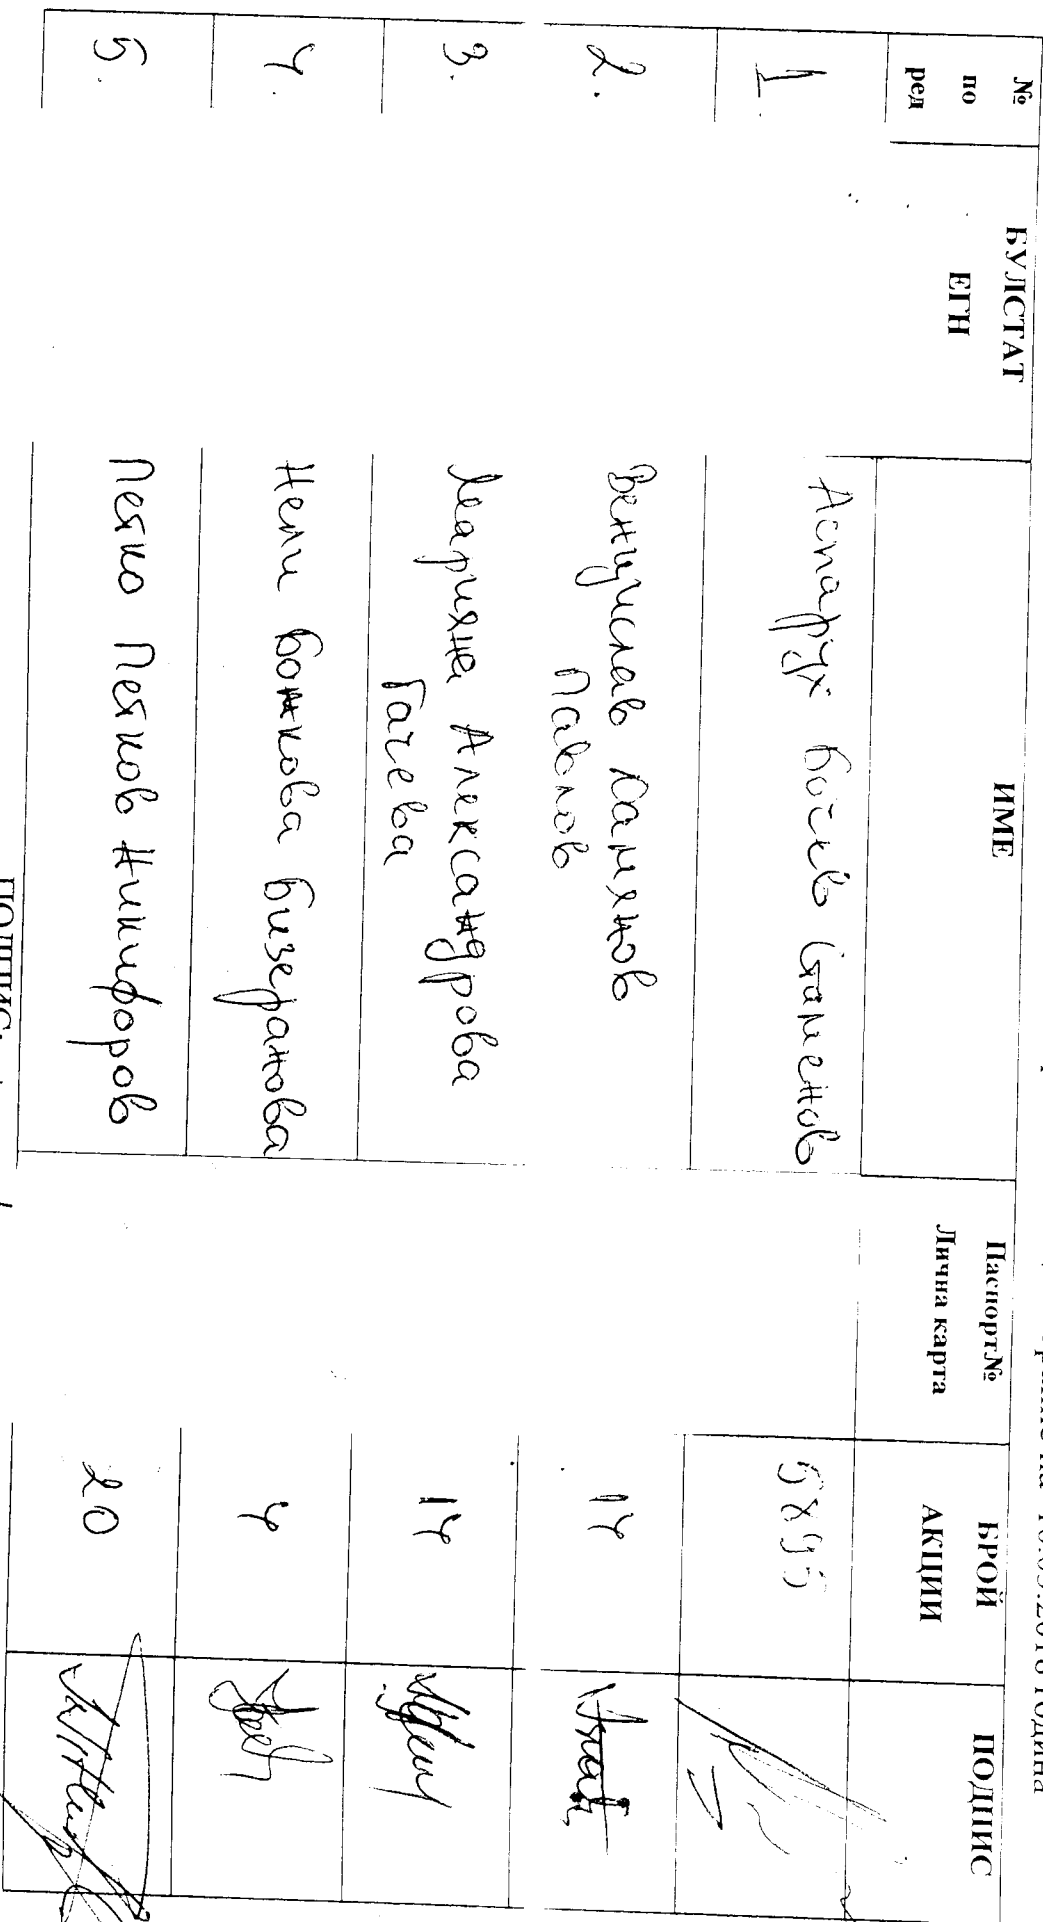 на 10.05.2018 година
№ по ред БУЛСТАТ ЕГН ИМЕ Паспорт№ Лична карта БРОЙ АКЦИИ ПОДПИС
1. Аспарух Боčев Стаменов 5895
2. Венцислав Дамянов Павлов 14
3. Марияна Александрова Гачева 14
4. Нели Божкова Бизеранова 4
5. Петко Петков Никифоров 20
ПОДПИС: